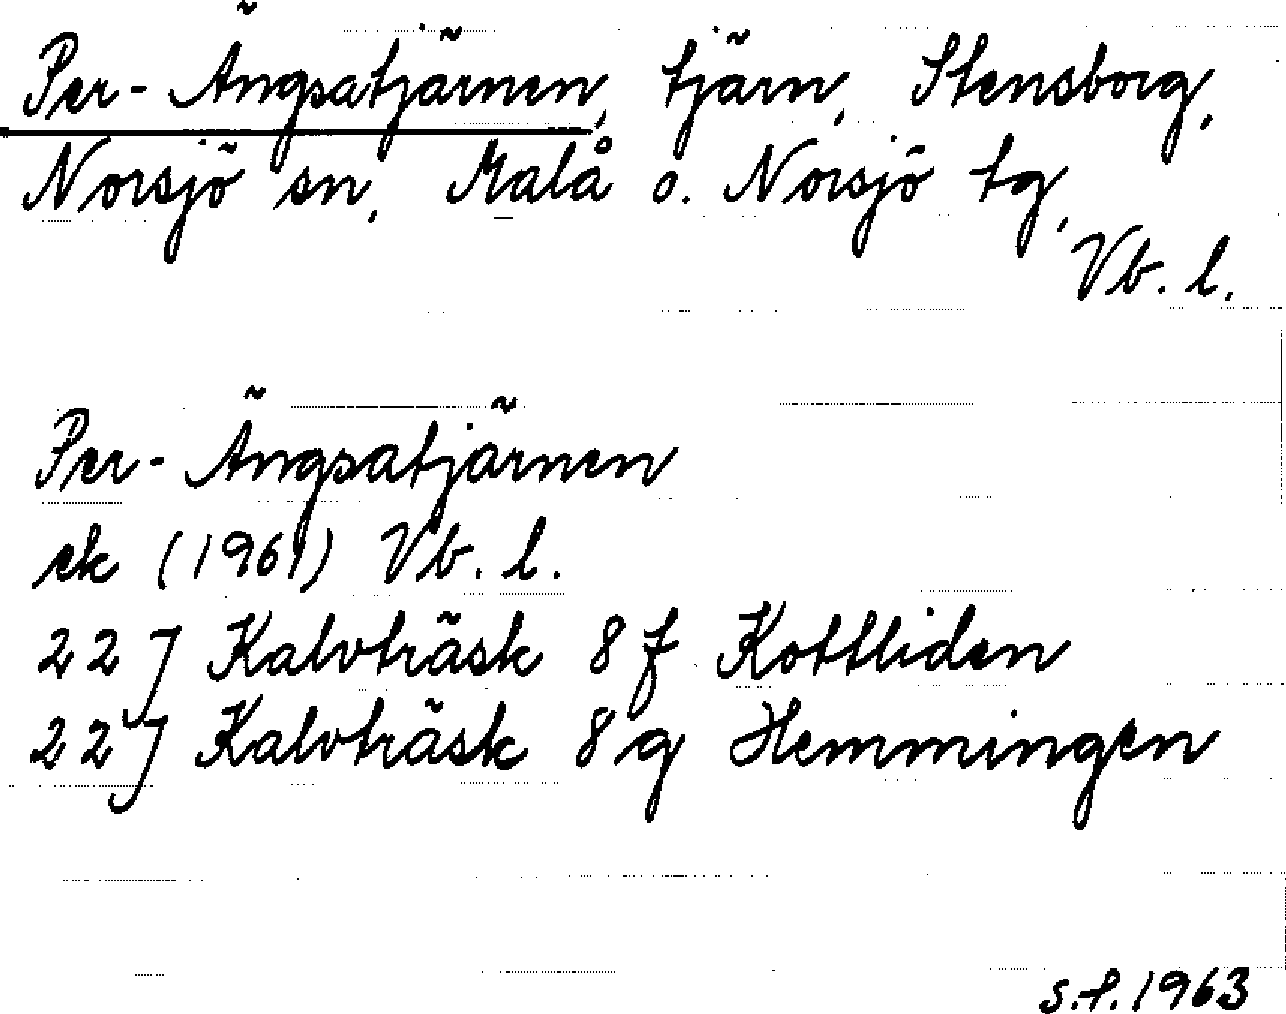 Per-Ängsatjärnen, tjärn, Stensborg,
Norsjö sn, Malå o. Norsjö tg,
Vb. l.
Per-Ängsatjärnen
ek (1961) Vb. l.
22J Kalvträsk 8f Kottliden
22J Kalvträsk 8g Hemmingen
s.f. 1963